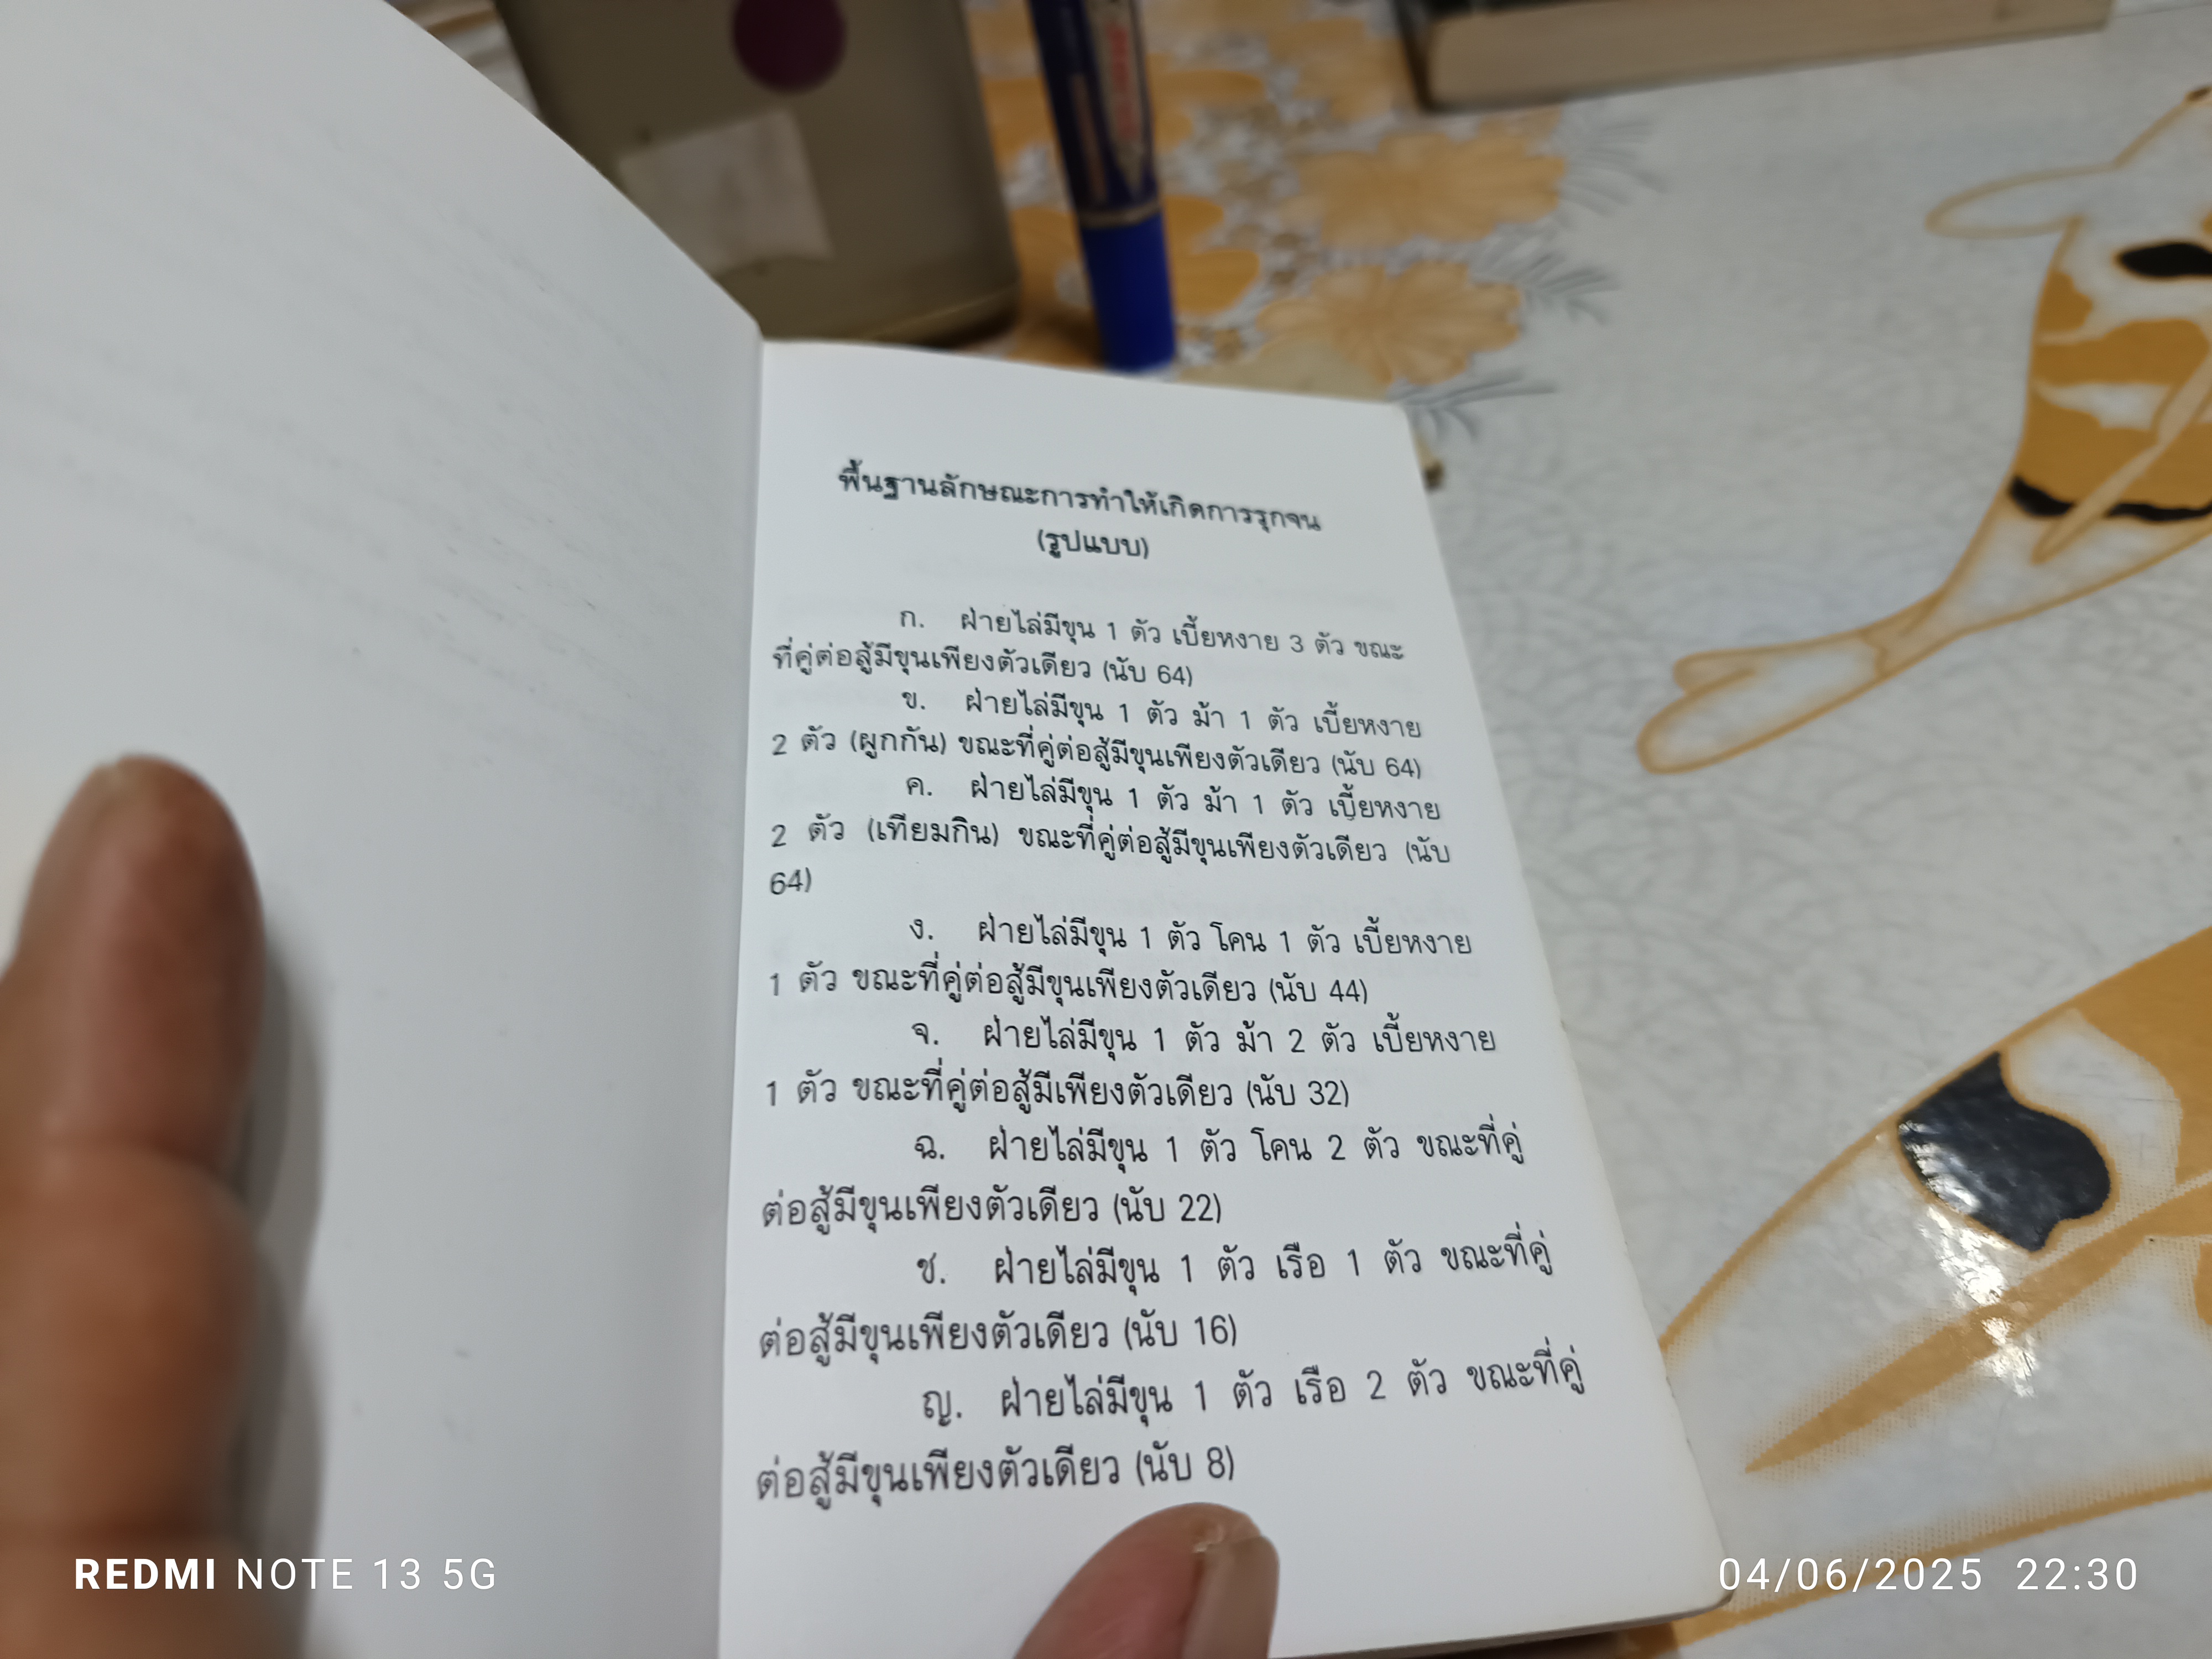 พื้นฐานลักษณะการทำให้เกิดการรุกจน
(รูปแบบ)
ก. ฝ่ายไล่มีขุน 1 ตัว เบี้ยหงาย 3 ตัว ขณะ
ที่คู่ต่อสู้มีขุนเพียงตัวเดียว (นับ 64)
ข. ฝ่ายไล่มีขุน 1 ตัว ม้า 1 ตัว เบี้ยหงาย
2 ตัว (ผูกกัน) ขณะที่คู่ต่อสู้มีขุนเพียงตัวเดียว (นับ 64)
ค. ฝ่ายไล่มีขุน 1 ตัว ม้า 1 ตัว เบี้ยหงาย
2 ตัว (เทียมกิน) ขณะที่คู่ต่อสู้มีขุนเพียงตัวเดียว (นับ
64)
ง. ฝ่ายไล่มีขุน 1 ตัว โคน 1 ตัว เบี้ยหงาย
1 ตัว ขณะที่คู่ต่อสู้มีขุนเพียงตัวเดียว (นับ 44)
จ. ฝ่ายไล่มีขุน 1 ตัว ม้า 2 ตัว เบี้ยหงาย
1 ตัว ขณะที่คู่ต่อสู้มีเพียงตัวเดียว (นับ 32)
ฉ. ฝ่ายไล่มีขุน 1 ตัว โคน 2 ตัว ขณะที่คู่
ต่อสู้มีขุนเพียงตัวเดียว (นับ 22)
ช. ฝ่ายไล่มีขุน 1 ตัว เรือ 1 ตัว ขณะที่คู่
ต่อสู้มีขุนเพียงตัวเดียว (นับ 16)
ญ. ฝ่ายไล่มีขุน 1 ตัว เรือ 2 ตัว ขณะที่คู่
ต่อสู้มีขุนเพียงตัวเดียว (นับ 8)
REDMI NOTE 13 5G
04/06/2025 22:30